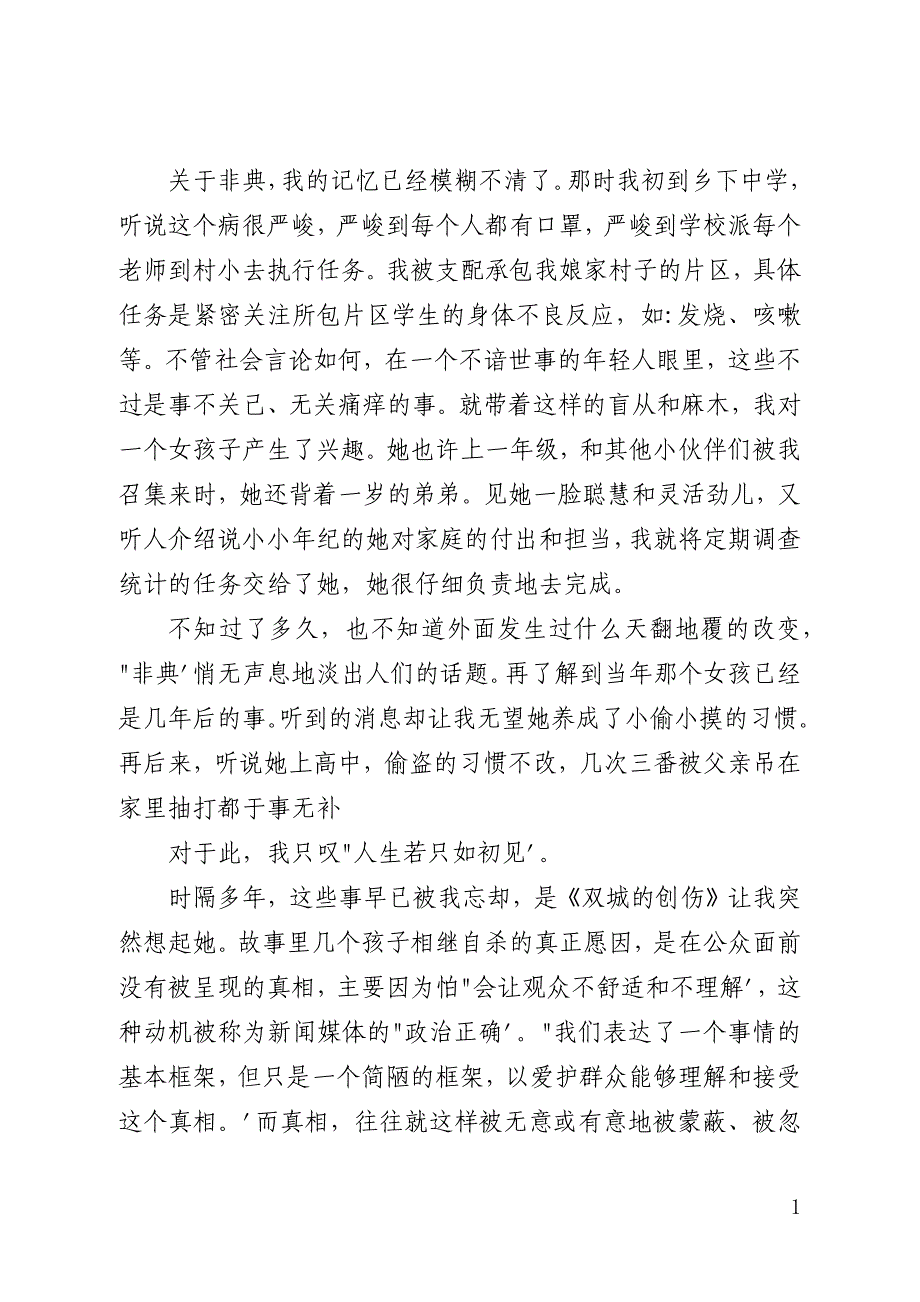 关于非典，我的记忆已经模糊不清了。那时我初到乡下中学，
听说这个病很严峻，严峻到每个人都有口罩，严峻到学校派每个
老师到村小去执行任务。我被支配承包我娘家村子的片区，具体
任务是紧密关注所包片区学生的身体不良反应，如：发烧、咳嗽
等。不管社会言论如何，在一个不谙世事的年轻人眼里，这些不
过是事不关己、无关痛痒的事。就带着这样的盲从和麻木，我对
一个女孩子产生了兴趣。她也许上一年级，和其他小伙伴们被我
召集来时，她还背着一岁的弟弟。见她一脸聪慧和灵活劲儿，又
听人介绍说小小年纪的她对家庭的付出和担当，我就将定期调查
统计的任务交给了她，她很仔细负责地去完成。
不知过了多久，也不知道外面发生过什么天翻地覆的改变，
"非典′悄无声息地淡出人们的话题。再了解到当年那个女孩已经
是几年后的事。听到的消息却让我无望她养成了小偷小摸的习惯。
再后来，听说她上高中，偷盗的习惯不改，几次三番被父亲吊在
家里抽打都于事无补
对于此，我只叹"人生若只如初见′。
时隔多年，这些事早已被我忘却，是《双城的创伤》让我突
然想起她。故事里几个孩子相继自杀的真正愿因，是在公众面前
没有被呈现的真相，主要因为怕"会让观众不舒适和不理解′，这
种动机被称为新闻媒体的"政治正确′。"我们表达了一个事情的
基本框架，但只是一个简陋的框架，以爱护群众能够理解和接受
这个真相。′而真相，往往就这样被无意或有意地被蒙蔽、被忽
1